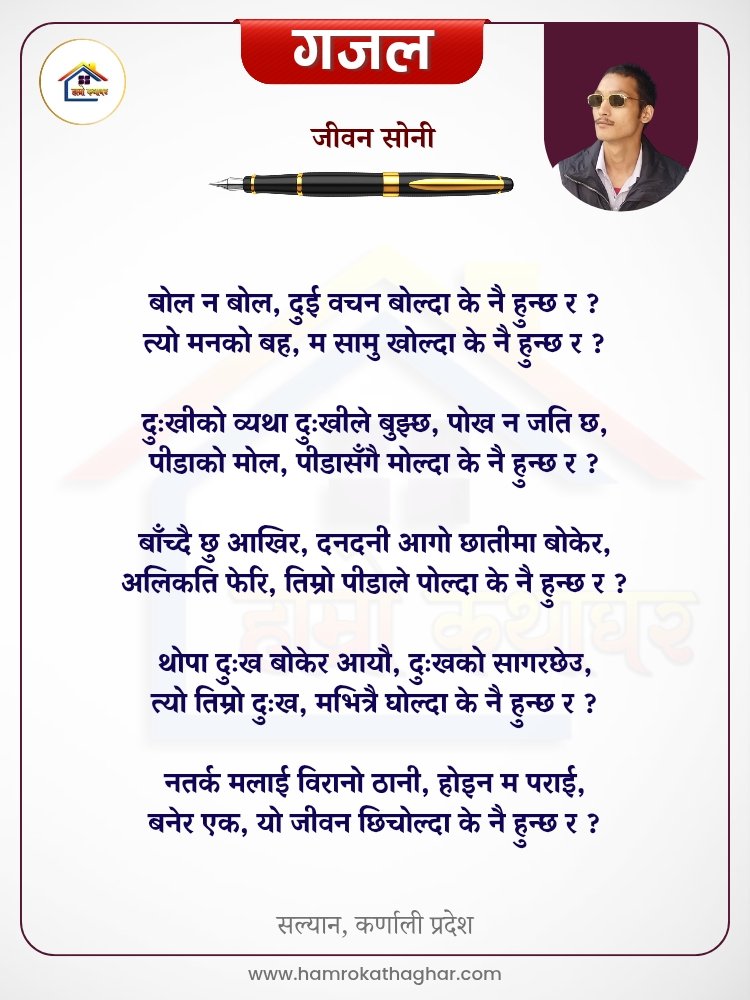 गजल
हाम्रो कथाघर
जीवन सोनी
बोल न बोल, दुई वचन बोल्दा के नै हुन्छ र ?
त्यो मनको बह, म सामु खोल्दा के नै हुन्छ र ?
दुःखीको व्यथा दुःखीले बुझ्छ, पोख न जति छ,
पीडाको मोल, पीडासँगै मोल्दा के नै हुन्छ र ?
बाँच्दै छु आखिर, दनदनी आगो छातीमा बोकेर,
अलिकति फेरि, तिम्रो पीडाले पोल्दा के नै हुन्छ र ?
हाम्रो कथाघर
थोपा दुःख बोकेर आयौ, दुःखको सागरछेउ,
त्यो तिम्रो दुःख, मभित्रै घोल्दा के नै हुन्छ र ?
नतर्क मलाई विरानो ठानी, होइन म पराई,
बनेर एक, यो जीवन छिचोल्दा के नै हुन्छ र ?
सल्यान, कर्णाली प्रदेश
www.hamrokathaghar.com